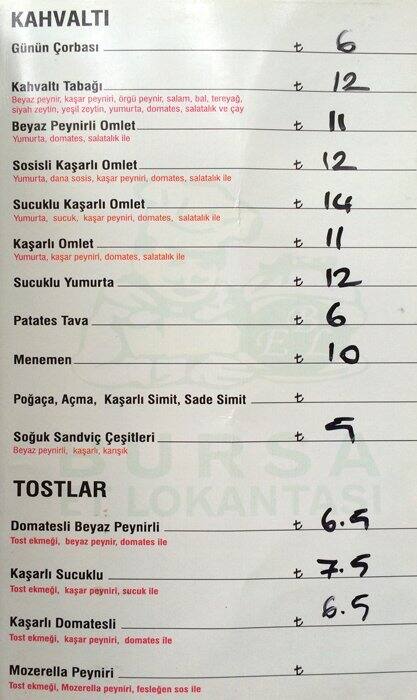 KAHVALTI
Günün Çorbası ₺ 6
Kahvaltı Tabağı ₺ 12
Beyaz peynir, kaşar peyniri, örgü peynir, salam, bal, tereyağ,
siyah zeytin, yeşil zeytin, yumurta, domates, salatalık ve çay
Beyaz Peynirli Omlet ₺ 11
Yumurta, domates, salatalık ile
Sosisli Kaşarlı Omlet ₺ 12
Yumurta, dana sosis, kaşar peyniri, domates, salatalık ile
Sucuklu Kaşarlı Omlet ₺ 14
Yumurta, sucuk, kaşar peyniri, domates, salatalık ile
Kaşarlı Omlet ₺ 11
Yumurta, kaşar peyniri, domates, salatalık ile
Sucuklu Yumurta ₺ 12
Patates Tava ₺ 6
Menemen ₺ 10
Poğaça, Açma, Kaşarlı Simit, Sade Simit ₺
Soğuk Sandviç Çeşitleri ₺ 5
Beyaz peynirli, kaşarlı, karışık
BURSA
ET LOKANTASI
TOSTLAR
Domatesli Beyaz Peynirli ₺ 6.5
Tost ekmeği, beyaz peynir, domates ile
Kaşarlı Sucuklu ₺ 7.5
Tost ekmeği, kaşar peyniri, sucuk ile
Kaşarlı Domatesli ₺ 6.5
Tost ekmeği, kaşar peyniri, domates ile
Mozerella Peyniri ₺
Tost ekmeği, Mozerella peyniri, fesleğen sos ile